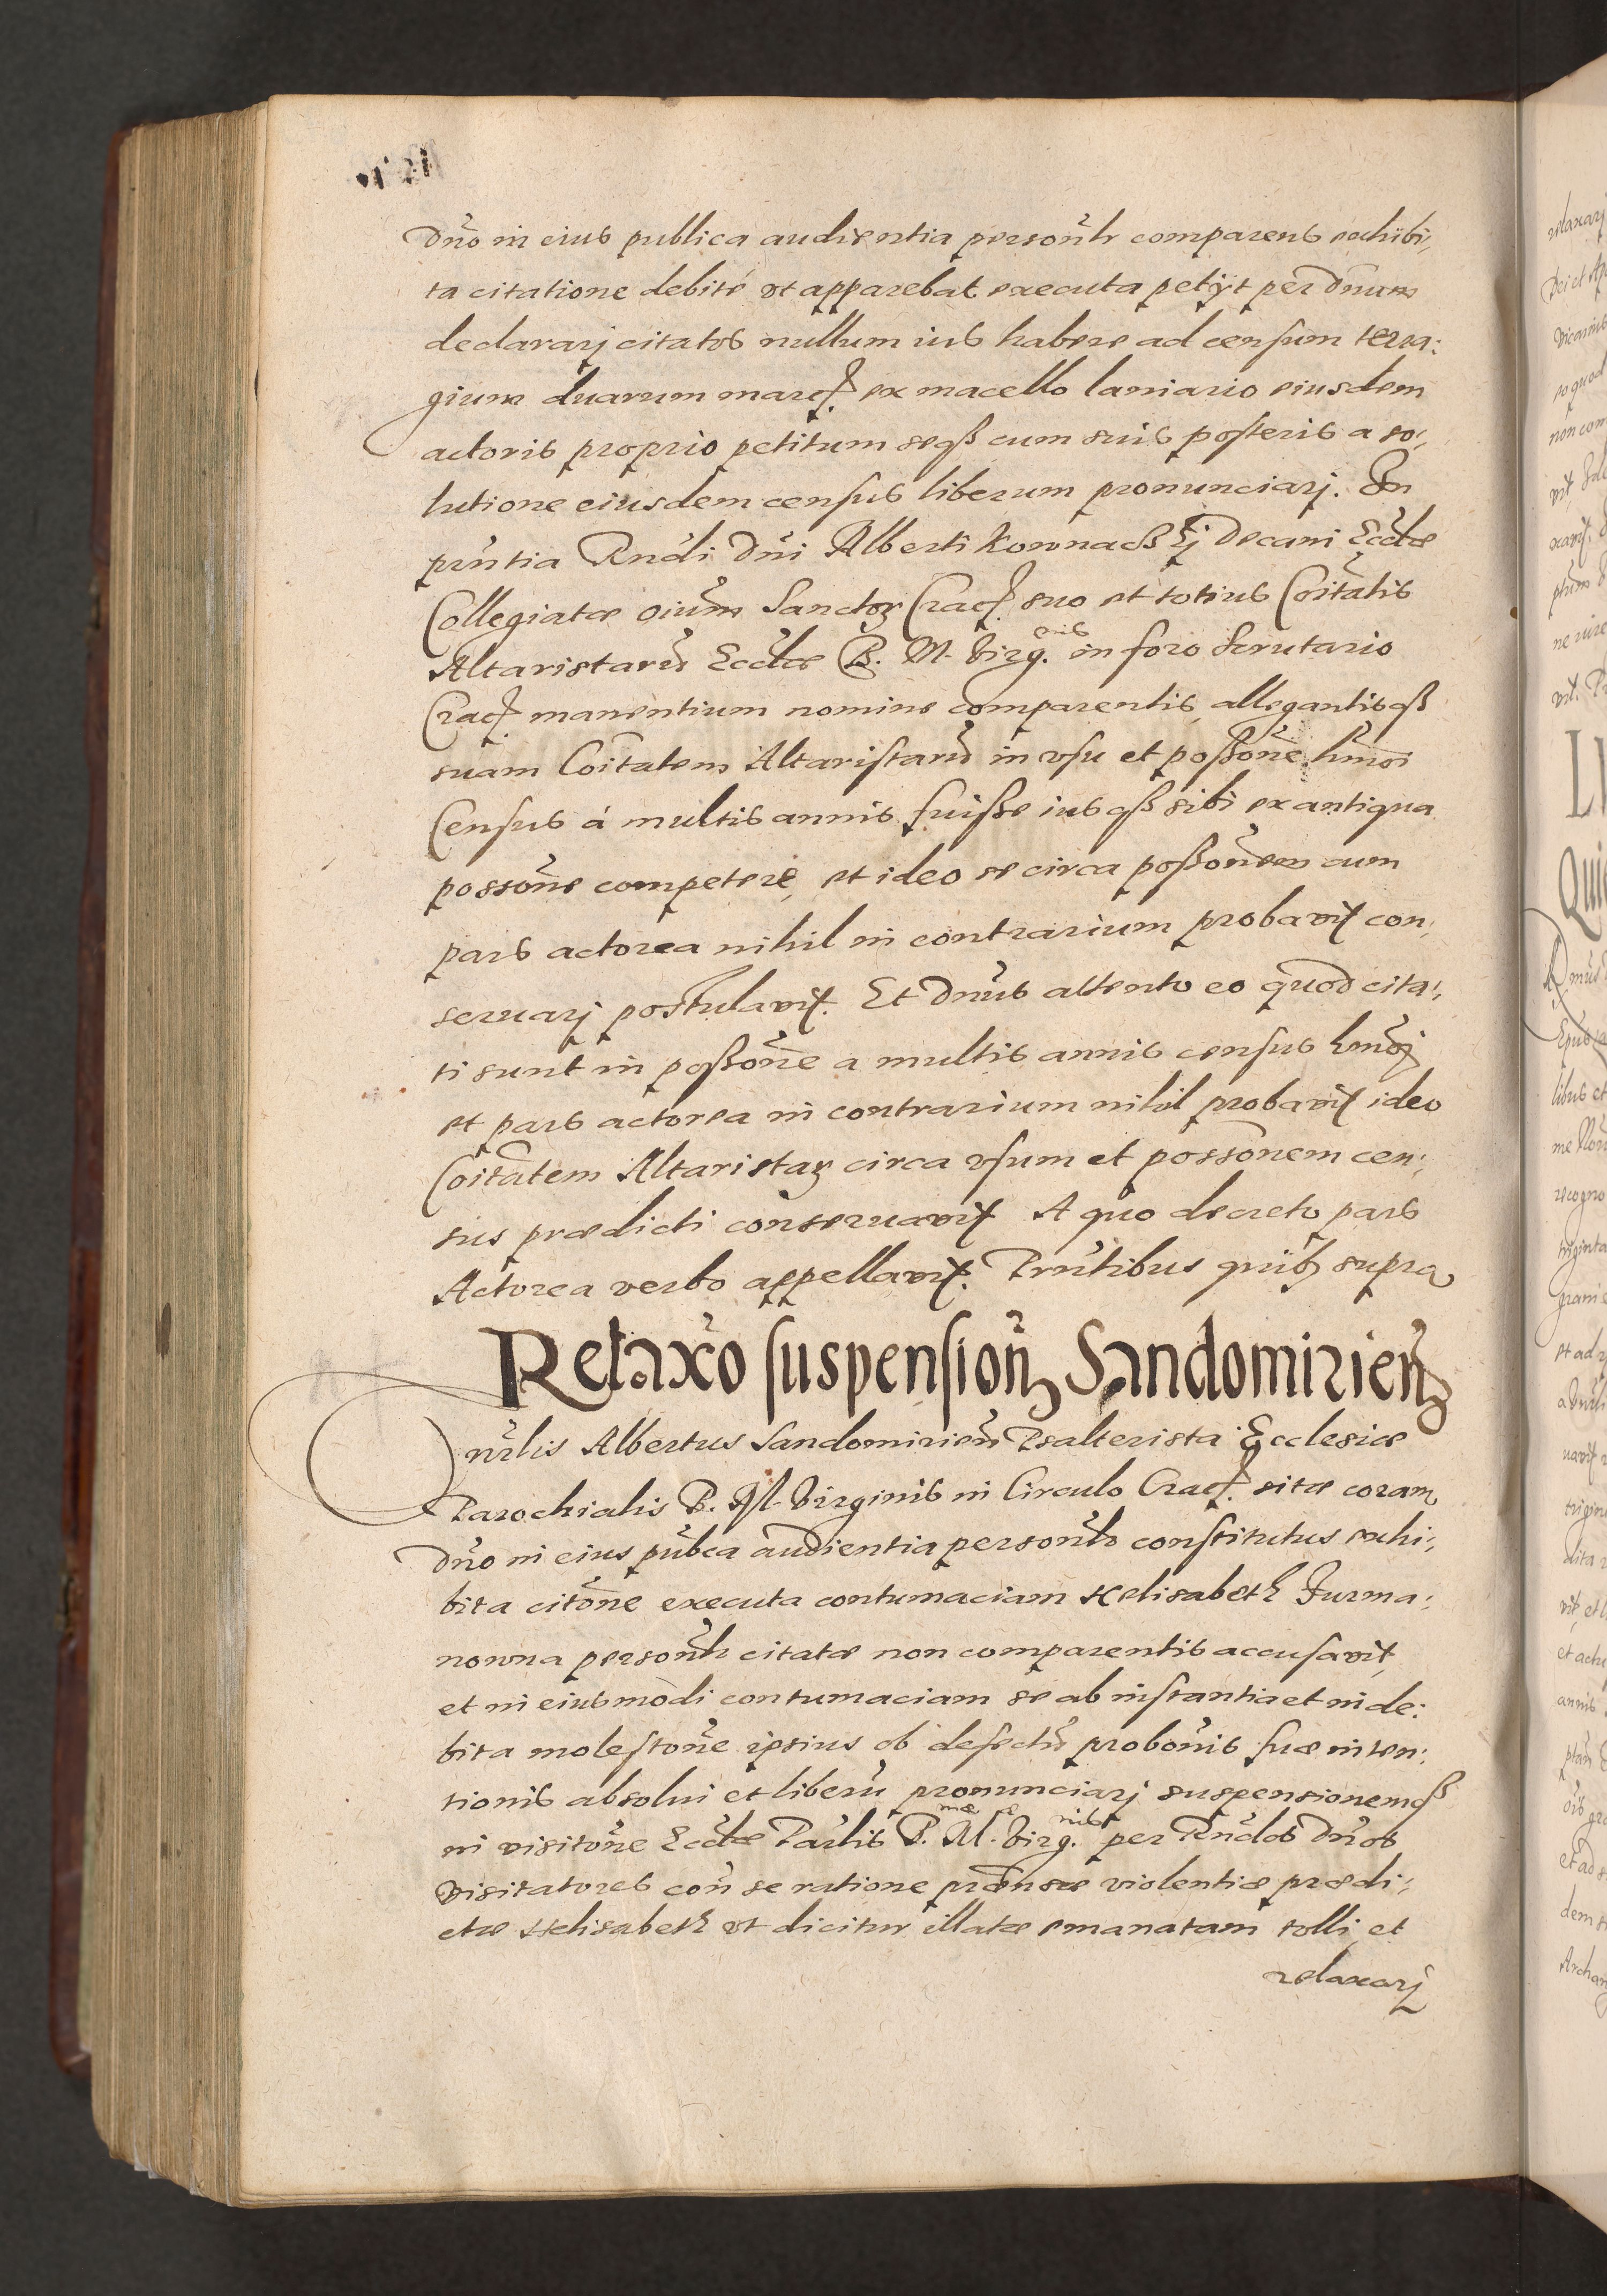 Dn̄o in eius publica audientia personȋlr comparens exhibi,
ta citatione debitè vt apparebat executa petijt per Dn̄um
declararj citatos nullum ius habere ad censum terra:
gium duarum marcȝ ex macello laniario eiusdem
actoris proprio petitum seqꝫ cum suis posteris a so,
lutione eiusdem census liberum pronunciarj. In
prn̄tia Rn̄di Dn̄i Alberti Kownaczkj Decani Eccl̄æ
Collegiatæ oium̄ Sanctoꝝ Cracȝ suo et totius Coītatis
Altaristarū Eccl̄æ B. M. Virg.nis in foro Scrutario
Cracȝ manentium nomine comparentis allegantisqꝫ
suam Coītatem Altaristarū in vsu et posson̄e hm̄oi
Census á multis annis fuisse iusqꝫ sibi ex antiqua
posson̄e competere, et ideo se circa posson̄em cum
pars actorea nihil in contrarium probavit con,
seruarj postulavit. Et Dn̄us attento eo quod cita,
ti sunt in posson̄e a multis annis census hm̄oj
et pars actorea in contrarium nihil probavit ideo
Coītatem Altaristaꝝ circa vsum et possonem̄ cen,
sus prædicti conseruavit A quo decreto pars
Actorea verbo appellavit. Prn̄tibus quibꝫ supra
Relaxo̅ suspension̄ Sandomirien̄
Dn̄rlis Albertus Sandomirien̄ Psalterista Ecclesiæ
Parochialis B. M. Virginis in Circulo Cracȝ. sitæ coram
Dn̄o in eius pub̄ca audientia personl̄r constitutus exhi,
bita citon̄e executa contumaciam Helisabeth Furma,
nowna personl̄r citatæ non comparentis accusavit,
et in eiusmōdi contumaciam se ab instantia et inde:
bita moleston̄e ipsius ob defectū probon̄is suæ inten:
tionis absolui et liberū pronunciarj suspensionemqꝫ
in visiton̄e Eccl̄æ Parl̄is B.mæ M.æ Virg.nis per Rn̄dos Dn̄os
Visitatores con̄ se ratione prætensæ violentiæ prædi,
ctæ Helisabeth vt dicitur illatæ emanatam tolli et
relaxarj